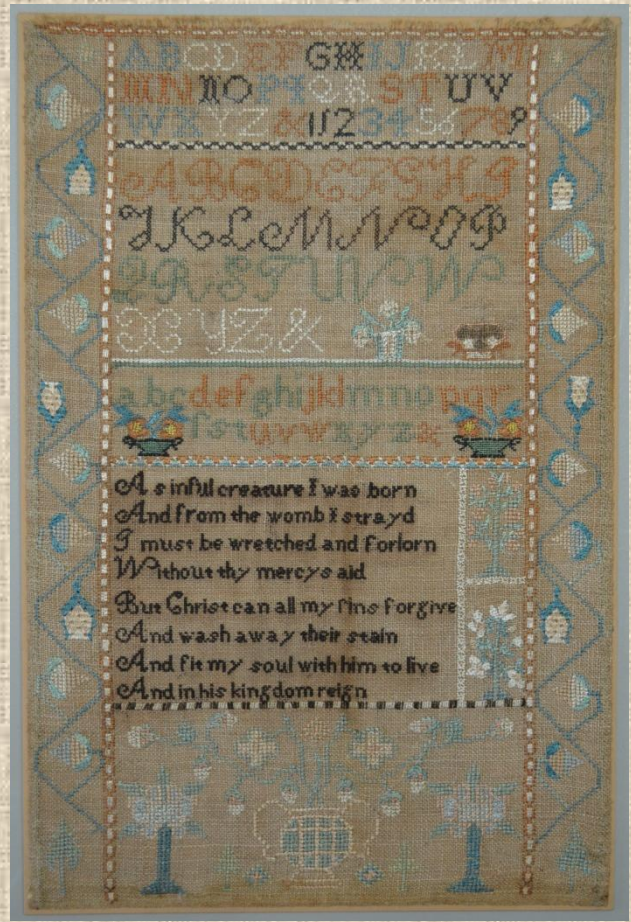 ABCDEFGHIJKLM
MNNOPQRSTUV
WXYZ&1123456789
ABCDEFGHI
JKLMNNOP
QRSTUVW
XYZ&
abcdefghijklmnopqr
ſstuvwxyz&
A sinful creature I was born
And from the womb I strayd
I must be wretched and forlorn
Without thy mercys aid
But Christ can all my ſins forgive
And wash away their stain
And fit my soul with him to live
And in his kingdom reign